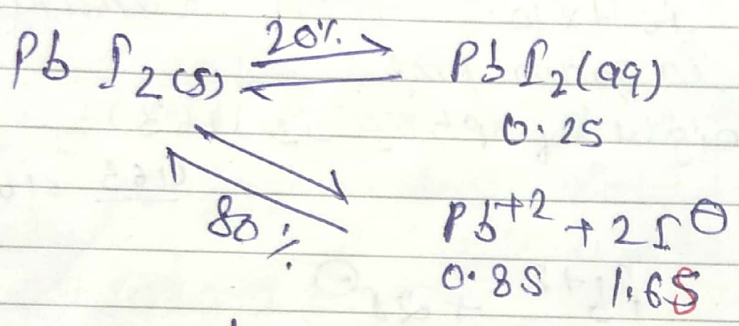 20%
PbI2(s) ⇌ PbI2(aq)
0.2S
80%
Pb+2 + 2I⊖
0.8S 1.6S